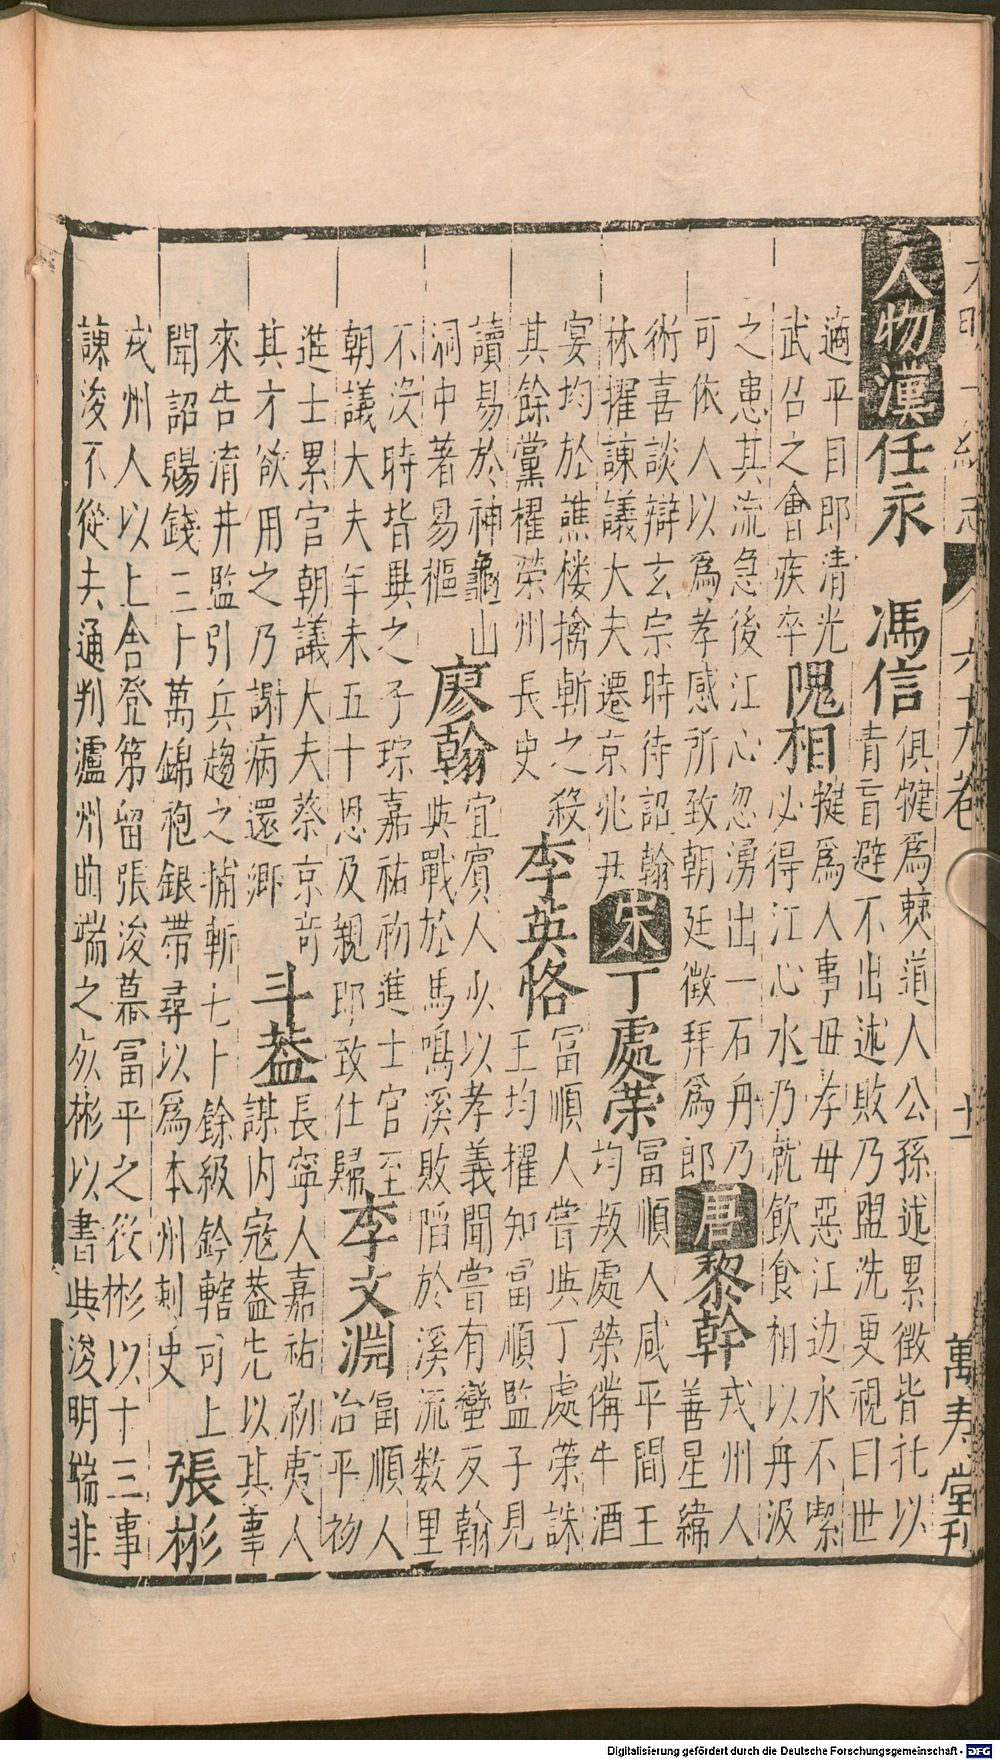 大明一統志 六十九卷 十一 萬寿堂刊
人物漢任永 馮信
俱犍爲僰道人公孫述累徵皆託以
青盲避不出述敗乃盥洗更視曰世
適平目即清光
武召之會疾卒
隗相
犍爲人事母孝母惡江边水不潔
必得江心水乃就飲食相以舟汲
之患其流急後江心忽湧出一石舟乃
可依人以爲孝感所致朝廷徵拜爲郎
唐黎幹
戎州人
善星緯
術喜談辯玄宗時待詔翰
林擢諫議大夫遷京兆尹
宋丁處荣
冨順人咸平間王
均叛處榮備牛酒
宴均於譙楼擒斬之殺
其餘黨櫂荣州長史
李英恪
冨順人嘗與丁處荣誅
王均擢知冨順監子見
讀易於神龜山
洞中著易樞
廖翰
宜賓人少以孝義聞嘗有蠻反翰
與戰於馬鳴溪敗陷於溪流数里
不没時皆異之子琮嘉祐初進士官至
朝議大夫年未五十恩及親即致仕歸
李文淵
冨順人
治平初
進士累官朝議大夫蔡京竒
其才欲用之乃謝病還鄉
斗葢
長寧人嘉祐初夷人
謀内寇葢先以其事
來告淯井監引兵趨之捕斬七十餘級鈐轄可上
聞詔賜錢三十萬錦袍銀帶尋以爲本州刺史
張彬
戎州人以上舍登第留張浚幕冨平之役彬以十三事
諫浚不從夫通判瀘州曲端之死彬以書與浚明端非
Digitalisierung gefördert durch die Deutsche Forschungsgemeinschaft - DFG